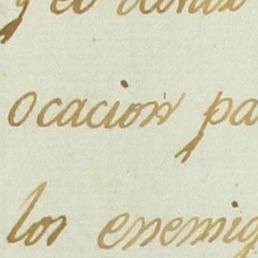 y el
ocacion pa
los enemig